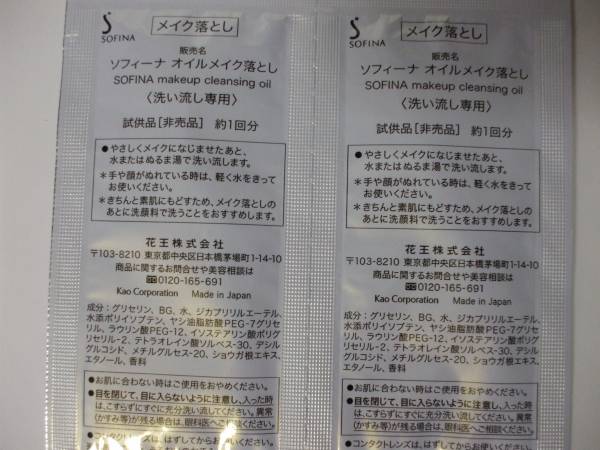 SOFINA
メイク落とし
販売名
ソフィーナ オイルメイク落とし
SOFINA makeup cleansing oil
〈洗い流し専用〉
試供品［非売品］ 約1回分
●やさしくメイクになじませたあと、
水またはぬるま湯で洗い流します。
＊手や顔がぬれている時は、軽く水をきって
お使いください。
＊きちんと素肌にもどすため、メイク落としの
あとに洗顔料で洗うことをおすすめします。
花王株式会社
〒103-8210 東京都中央区日本橋茅場町1-14-10
商品に関するお問合せや美容相談は
0120-165-691
Kao Corporation Made in Japan
成分：グリセリン、BG、水、ジカプリリルエーテル、
水添ポリイソブテン、ヤシ油脂肪酸PEG-7グリセ
リル、ラウリン酸PEG-12、イソステアリン酸ポリグ
リセリル-2、テトラオレイン酸ソルベス-30、デシル
グルコシド、メチルグルセス-20、ショウガ根エキス、
エタノール、香料
●お肌に合わない時はご使用をおやめください。
●目を閉じて、目に入らないように注意し、入った時
は、こすらずにすぐに充分洗い流してください。異常
（かすみ等）が残る場合は、眼科医へご相談ください。
●コンタクトレンズは、はずしてからお使いください。
SOFINA
メイク落とし
販売名
ソフィーナ オイルメイク落とし
SOFINA makeup cleansing oil
〈洗い流し専用〉
試供品［非売品］ 約1回分
●やさしくメイクになじませたあと、
水またはぬるま湯で洗い流します。
＊手や顔がぬれている時は、軽く水をきって
お使いください。
＊きちんと素肌にもどすため、メイク落としの
あとに洗顔料で洗うことをおすすめします。
花王株式会社
〒103-8210 東京都中央区日本橋茅場町1-14-10
商品に関するお問合せや美容相談は
0120-165-691
Kao Corporation Made in Japan
成分：グリセリン、BG、水、ジカプリリルエーテル、
水添ポリイソブテン、ヤシ油脂肪酸PEG-7グリセ
リル、ラウリン酸PEG-12、イソステアリン酸ポリグ
リセリル-2、テトラオレイン酸ソルベス-30、デシル
グルコシド、メチルグルセス-20、ショウガ根エキス、
エタノール、香料
●お肌に合わない時はご使用をおやめください。
●目を閉じて、目に入らないように注意し、入った時
は、こすらずにすぐに充分洗い流してください。異常
（かすみ等）が残る場合は、眼科医へご相談ください。
●コンタクトレンズは、はずしてからお使いください。